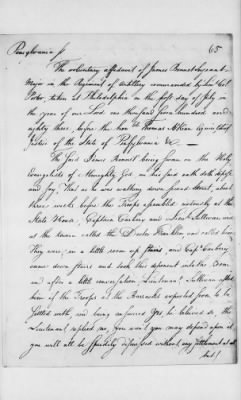 Pennsylvania ss
65
The voluntary affidavit of James Bennet Serjeant
Major in the Regiment of Artillery commanded by Lieut Col
Porter, taken at Philadelphia on the first day of July in
the year of our Lord one thousand seven hundred and
eighty three, before the hon. Thomas M:Kean Esquire, Chief
Justice of the State of Pennsylvania &c —
The said James Bennet being sworn on the Holy
Evangelists of Almighty God in his said oath doth depose
and say, That as he was walking down second street, about
three weeks before the Troops assembled riotously at the
State House, Captain Carbery and Lieut Sullivan were
at the tavern called the Doctor Franklin and called him
They were in a little room up stairs, and Cap Carbery
came down stairs and took this deponent into the room
and after a little conversation Lieutenant Sullivan asked
him if the Troops at the Barracks expected soon to be
settled with, and being answered Yes he believed so, the
Lieutenant replied no, You won't you may depend upon it
you will all be discharged without any settlement at all
but